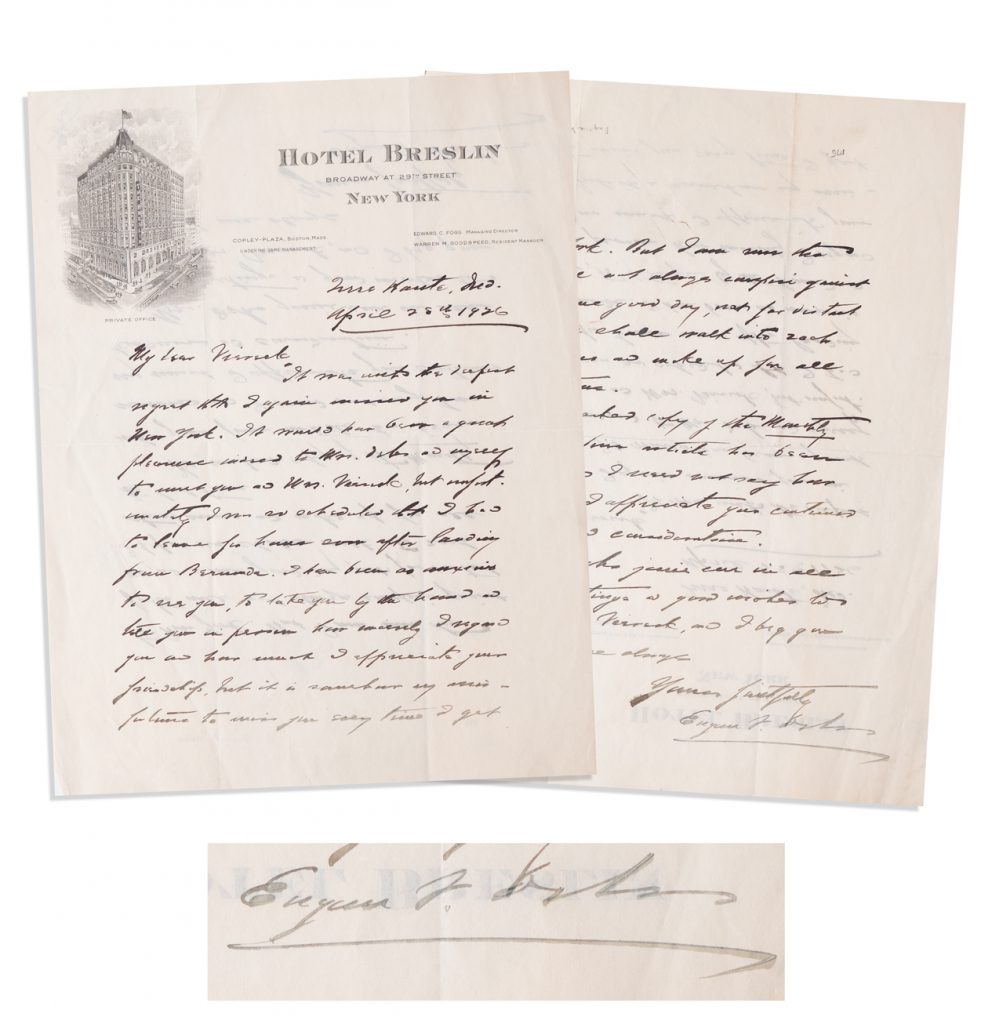 HOTEL BRESLIN
BROADWAY AT 29TH STREET
NEW YORK
COPLEY-PLAZA, BOSTON, MASS.
UNDER THE SAME MANAGEMENT
EDWARD C. FOGG, MANAGING DIRECTOR
WARREN M. GOODSPEED, RESIDENT MANAGER
PRIVATE OFFICE
Terre Haute, Ind.
April 28th 1926
My dear Viereck
It was with the deepest
regret that I again missed you in
New York. It would have been a great
pleasure indeed to Mrs. Debs and myself
to meet you and Mrs. Viereck, but unfort-
unately I was so scheduled that I had
to leave for home soon after landing
from Bermuda. I have been so anxious
to see you, to take you by the hand and
tell you in person how sincerely I regard
you and how much I appreciate your
friendship, but it is somehow my mis-
fortune to miss you every time I get
But I am sure the
not always conspire against
good day, not far distant
shall walk into each
and make up for all
copy of the Monthly
article has been
I need not say how
appreciate your continued
consideration.
joins me in all
good wishes to
Viereck, and I beg you
always
Yours faithfully
Eugene V. Debs
Eugene V. Debs